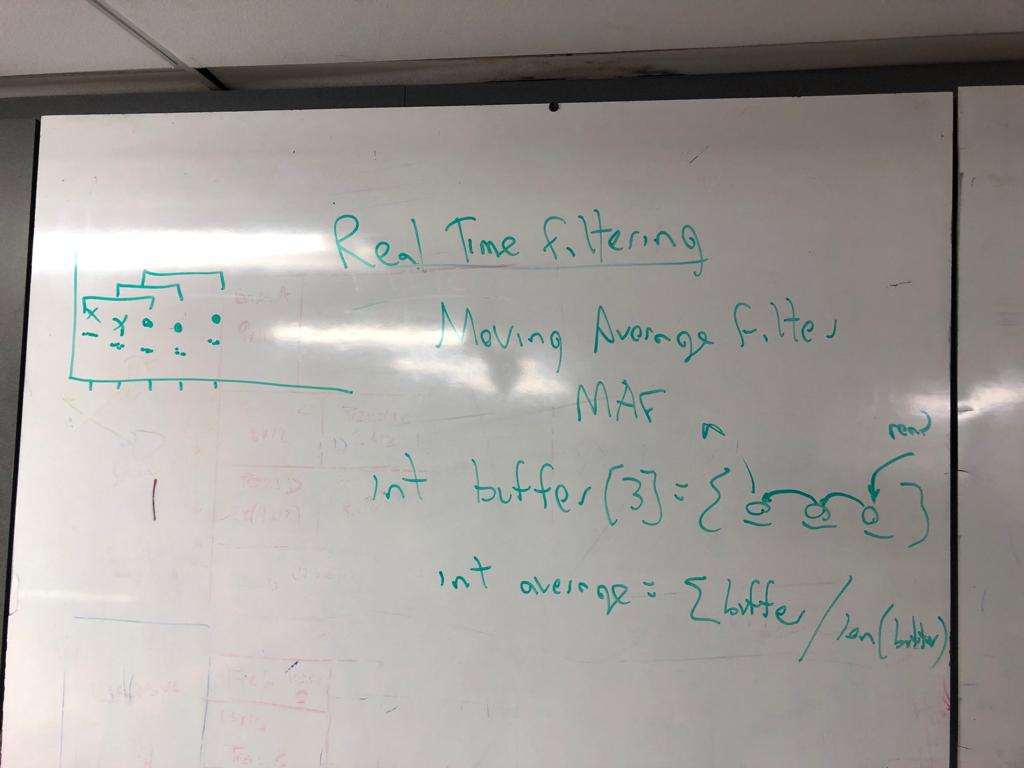 Real Time Filtering
Moving Average Filter
MAF
read
int buffer[3] = { 0 0 0 }
int average = Σ buffer / len(buffer)